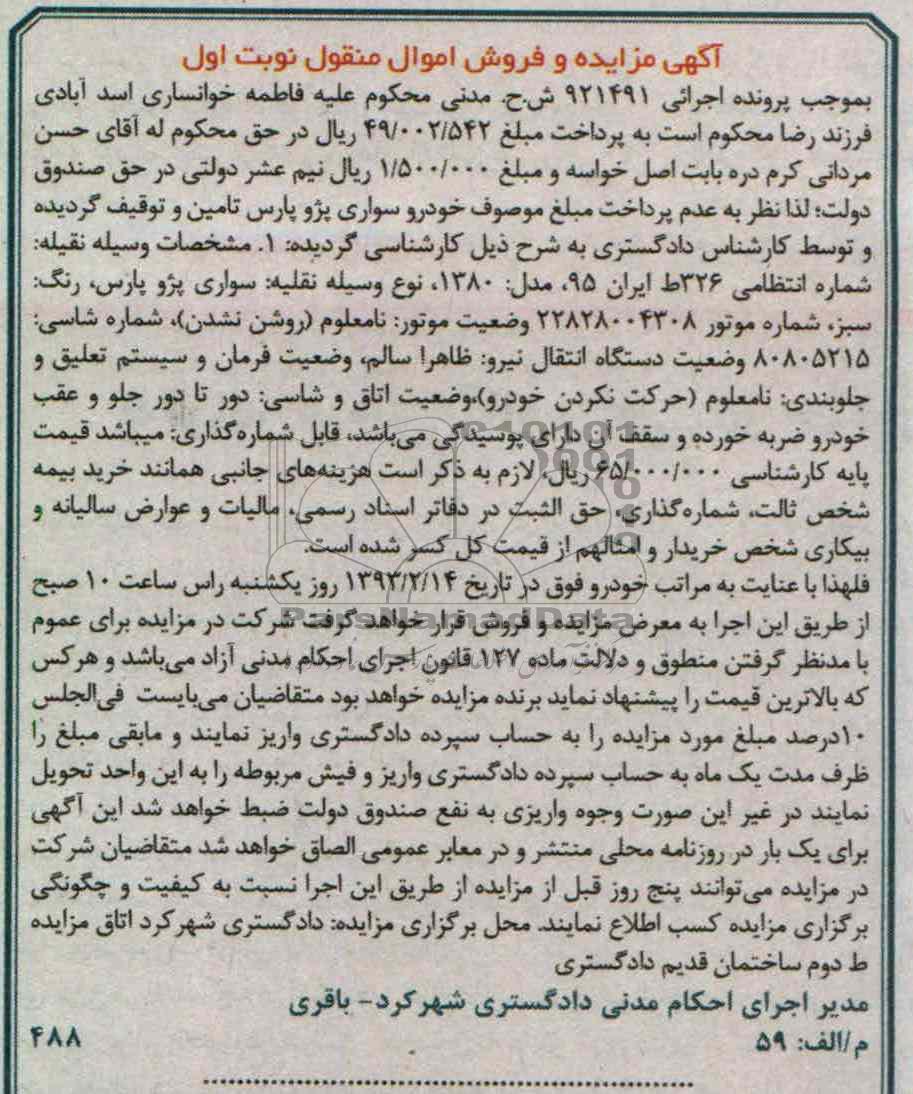 آگهی مزایده و فروش اموال منقول نوبت اول
بموجب پرونده اجرائی ۹۲۱۴۹۱ ش.ح. مدنی محکوم علیه فاطمه خوانساری اسد آبادی
فرزند رضا محکوم است به پرداخت مبلغ ۴۹/۰۰۲/۵۴۲ ریال در حق محکوم له آقای حسن
مردانی کرم دره بابت اصل خواسه و مبلغ ۱/۵۰۰/۰۰۰ ریال نیم عشر دولتی در حق صندوق
دولت؛ لذا نظر به عدم پرداخت مبلغ موصوف خودرو سواری پژو پارس تامین و توقیف گردیده
و توسط کارشناس دادگستری به شرح ذیل کارشناسی گردیده: ۱. مشخصات وسیله نقیله:
شماره انتظامی ۳۲۶ط ایران ۹۵، مدل: ۱۳۸۰، نوع وسیله نقلیه: سواری پژو پارس، رنگ:
سبز، شماره موتور ۲۲۸۲۸۰۰۴۳۰۸ وضعیت موتور: نامعلوم (روشن نشدن)، شماره شاسی:
۸۰۸۰۵۲۱۵ وضعیت دستگاه انتقال نیرو: ظاهرا سالم، وضعیت فرمان و سیستم تعلیق و
جلوبندی: نامعلوم (حرکت نکردن خودرو)،وضعیت اتاق و شاسی: دور تا دور جلو و عقب
خودرو ضربه خورده و سقف آن دارای پوسیدگی می‌باشد، قابل شماره‌گذاری: میباشد قیمت
پایه کارشناسی ۶۵/۰۰۰/۰۰۰ ریال، لازم به ذکر است هزینه‌های جانبی همانند خرید بیمه
شخص ثالت، شماره‌گذاری، حق الثبت در دفاتر اسناد رسمی، مالیات و عوارض سالیانه و
بیکاری شخص خریدار و امثالهم از قیمت کل کسر شده است.
فلهذا با عنایت به مراتب خودرو فوق در تاریخ ۱۳۹۳/۲/۱۴ روز یکشنبه راس ساعت ۱۰ صبح
از طریق این اجرا به معرض مزایده و فروش قرار خواهد گرفت شرکت در مزایده برای عموم
با مدنظر گرفتن منطوق و دلالت ماده ۱۲۷ قانون اجرای احکام مدنی آزاد می‌باشد و هرکس
که بالاترین قیمت را پیشنهاد نماید برنده مزایده خواهد بود متقاضیان می‌بایست فی‌الجلس
۱۰درصد مبلغ مورد مزایده را به حساب سپرده دادگستری واریز نمایند و مابقی مبلغ را
ظرف مدت یک ماه به حساب سپرده دادگستری واریز و فیش مربوطه را به این واحد تحویل
نمایند در غیر این صورت وجوه واریزی به نفع صندوق دولت ضبط خواهد شد این آگهی
برای یک بار در روزنامه محلی منتشر و در معابر عمومی الصاق خواهد شد متقاضیان شرکت
در مزایده می‌توانند پنج روز قبل از مزایده از طریق این اجرا نسبت به کیفیت و چگونگی
برگزاری مزایده کسب اطلاع نمایند. محل برگزاری مزایده: دادگستری شهرکرد اتاق مزایده
ط دوم ساختمان قدیم دادگستری
مدیر اجرای احکام مدنی دادگستری شهرکرد- باقری
م/الف: ۵۹
۴۸۸
ParsNamadData